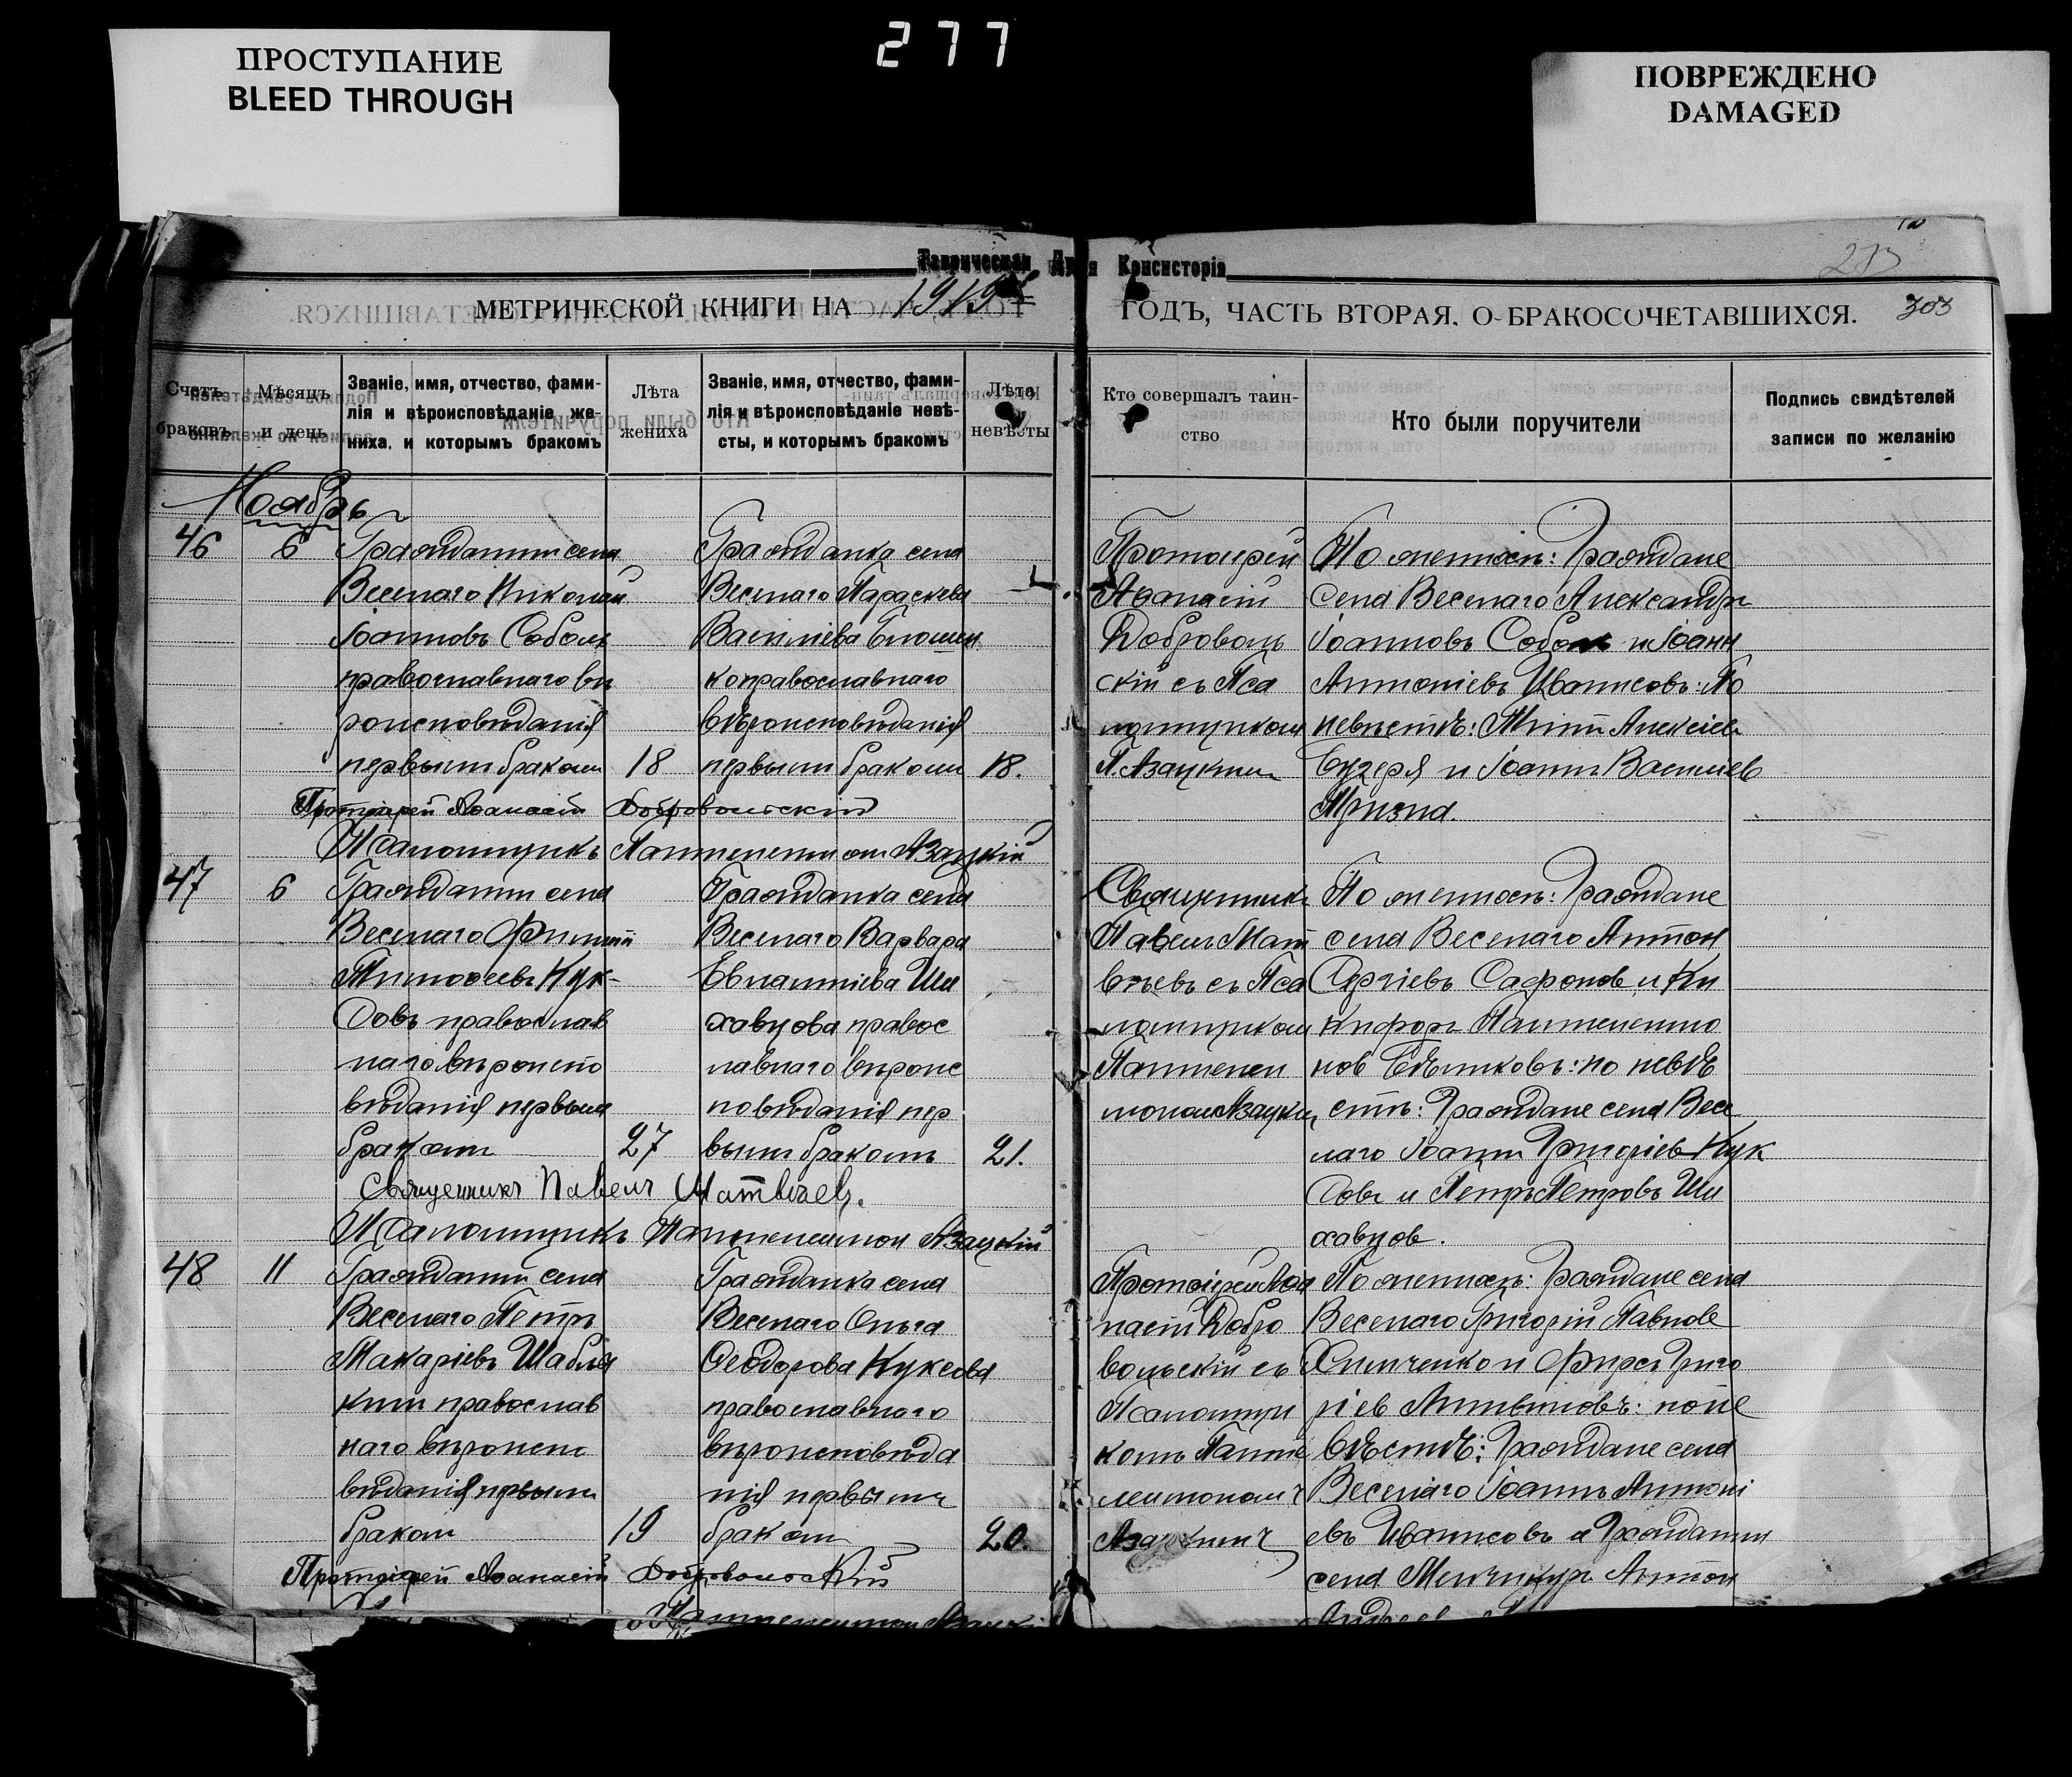 277
ПРОСТУПАНИЕ
BLEED THROUGH
ПОВРЕЖДЕНО
DAMAGED
Таврическая Консисторія
МЕТРИЧЕСКОЙ КНИГИ НА 1919 ГОДЪ, ЧАСТЬ ВТОРАЯ, О БРАКОСОЧЕТАВШИХСЯ. 303
Счетъ браковъ
Мѣсяцъ и день
Званіе, имя, отчество, фами-
лія и вѣроисповѣданіе же-
ниха, и которымъ бракомъ
Лѣта жениха
Званіе, имя, отчество, фами-
лія и вѣроисповѣданіе невѣ-
сты, и которымъ бракомъ
Лѣта невѣсты
Кто совершалъ таин-
ство
Кто были поручители
Подпись свидѣтелей
записи по желанію
Ноябрь
46
6
Гражданинъ села
Веселаго Николай
Іоанновъ Соболь
православнаго вѣ
роисповѣданія
первымъ бракомъ
18
Гражданка села
Веселаго Параскева
Василіева
православнаго
вѣроисповѣданія
первымъ бракомъ
18.
Протоіерей
Аѳанасій
Доброволь
скій съ Пса
ломщикомъ
П. Азацкимъ
По женихѣ: Граждане
села Веселаго Александръ
Іоанновъ Соболь и Іоанн
Антоніевъ Иванисовъ: По
невѣстѣ: Алексіев
и Іоаннъ Василіев
Протоіерей Аѳанасій Добровольскій
Псаломщикъ Пантелеимонъ Азацкій
47
6
Гражданинъ села
Веселаго Филиппъ
Тимоѳеевъ Кук-
совъ православ
наго вѣроиспо
вѣданія первымъ
бракомъ
27
Гражданка села
Веселаго Варвара
Евлампіева Ши
хавцова правос
лавнаго вѣроис
повѣданія пер
вымъ бракомъ
21.
Священникъ
Павелъ Мат
вѣевъ съ Пса
ломщикомъ
Пантелеи
мономъ Азацким
По женихѣ: Граждане
села Веселаго Антон
Сергіевъ Сафонов и Ни
кифоръ Пантелеимо
нов по невѣ
стѣ: Граждане села Весе
лаго Іоаннъ Григоріев Кук
совъ и Петръ Петровъ Ши
хавцов.
Священникъ Павелъ Матвѣевъ.
Псаломщикъ Пантелеимон Азацкій
48
11
Гражданинъ села
Веселаго Петръ
Макаріевъ Шабля
кинъ православ
наго вѣроиспо
вѣданія первымъ
бракомъ
19
Гражданка села
Веселаго Ольга
Ѳеодорова Куксова
православнаго
вѣроисповѣда
нія первымъ
бракомъ
20.
Протоіерей Аѳа
насій Добро
вольскій съ
Псаломщи
комъ Панте
леимономъ
Азацкимъ
По женихѣ: Граждане села
Веселаго Григорій Павлов
Химченко и Фирсъ Григо
ріев Литвиновъ: по не
вѣстѣ: Граждане села
Веселаго Іоаннъ Антоні
евъ Иванисовъ и Гражданин
села Антон
Протоіерей Аѳанасій Добровольскій
Пантелеимон Азацкі